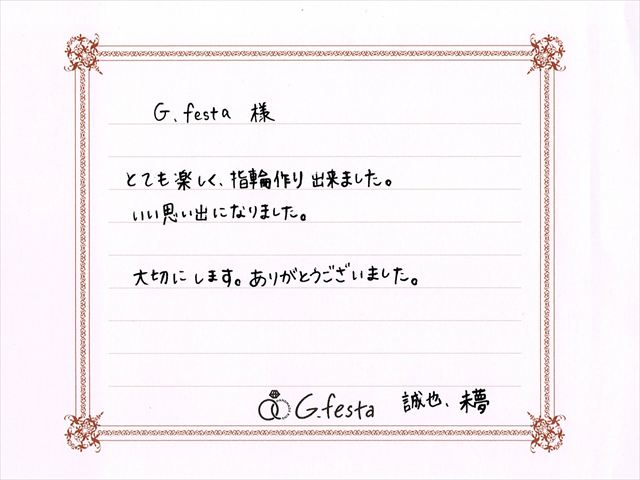 G.festa 様
とても楽しく、指輪作り出来ました。
いい思い出になりました。
大切にします。ありがとうございました。
G.festa 誠也、未夢